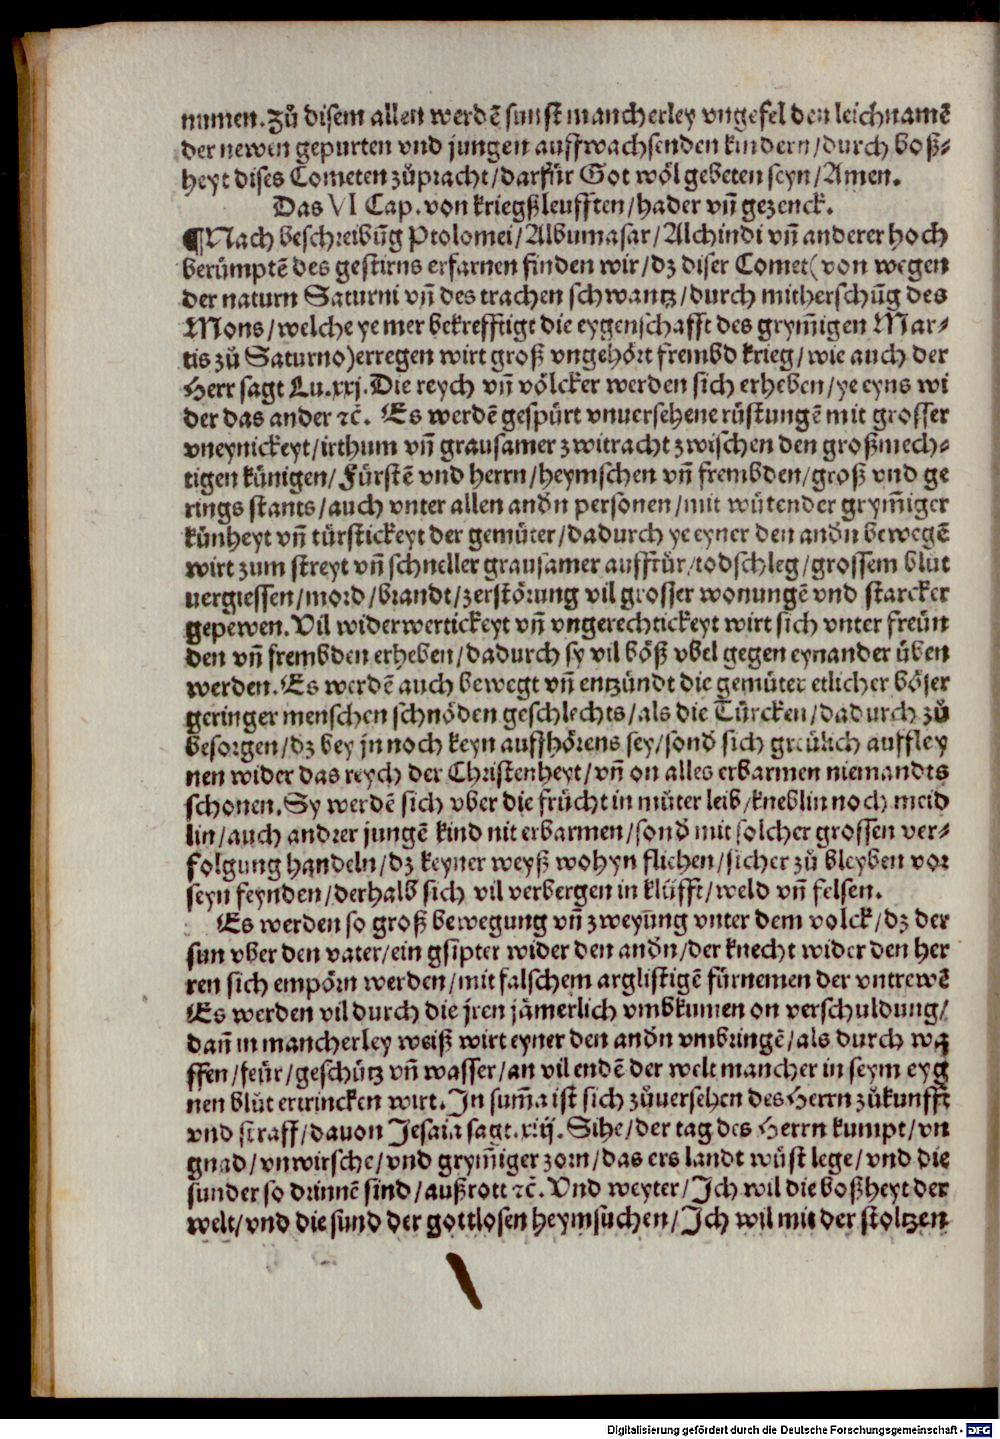 numen. Zů disem allen werdẽ sunst mancherley vngefel den leichnamẽ
der newen gepurten vnd jungen auffwachsenden kindern/durch boß⸗
heyt dises Cometen zůpracht/darfür Got wöl gebeten seyn/Amen.
Das VI Cap. von kriegßleufften/hader vñ gezenck.
¶Nach beschreibũg Ptolomei/Albumasar/Alchindi vñ anderer hoch
berümptẽ des gestirns erfarnen finden wir/dz diser Comet(von wegen
der naturn Saturni vñ des trachen schwantz/durch mitherschũg des
Mons/welche ye mer bekrefftigt die eygenschafft des grym̃igen Mar⸗
tis zů Saturno)erregen wirt groß vngehört frembd krieg/wie auch der
Herr sagt Lu.xxj. Die reych vñ völcker werden sich erheben/ye eyns wi
der das ander ⁊c̃. Es werdẽ gespürt vnuersehene rüstungẽ mit grosser
vneynickeyt/irthum vñ grausamer zwitracht zwischen den großmech⸗
tigen künigen/Fürstẽ vnd herrn/heymschen vñ frembden/groß vnd ge
rings stants/auch vnter allen andn̄ personen/mit wütender grym̃iger
künheyt vñ türstickeyt der gemüter/dadurch ye eyner den andn̄ bewegẽ
wirt zum streyt vñ schneller grausamer auffrůr/todschleg/grossem blůt
uergiessen/mord/brandt/zerstörung vil grosser wonungẽ vnd starcker
gepewen. Vil widerwertickeyt vñ vngerechtickeyt wirt sich vnter freün
den vñ frembden erheben/dadurch sy vil böß vbel gegen eynander üben
werden. Es werdẽ auch bewegt vñ entzündt die gemüter etlicher böser
geringer menschen schnöden geschlechts/als die Türcken/dadurch zů
besorgen/dz bey jn noch keyn auffhörens sey/sond̄ sich greülich auffley
nen wider das reych der Christenheyt/vñ on alles erbarmen niemandts
schonen. Sy werdẽ sich vber die frücht in můter leib/kneblin noch meid
lin/auch andrer jungẽ kind nit erbarmen/sond̄ mit solcher grossen ver⸗
folgung handeln/dz keyner weyß wohyn flichen/sicher zů bleyben vor
seyn feynden/derhalb sich vil verbergen in klüfft/weld vñ felsen.
Es werden so groß bewegung vñ zweyũng vnter dem volck/dz der
sun vber den vater/ein gsipter wider den andn̄/der knecht wider den her
ren sich empörn werden/mit falschem arglistigẽ fürnemen der vntrewẽ
Es werden vil durch die jren jämerlich vmbkumen on verschuldung/
dañ in mancherley weiß wirt eyner den andn̄ vmbringẽ/als durch wa
ffen/feür/geschütz vñ wasser/an vil endẽ der welt mancher in seym eyg
nen blůt ertrincken wirt. In sum̃a ist sich zůuersehen des Herrn zůkunfft
vnd straff/dauon Jesaia sagt.xiij. Sihe/der tag des Herrn kumpt/vn
gnad/vnwirsche/vnd grym̃iger zorn/das ers landt wůst lege/vnd die
sunder so drinnẽ sind/außrott ⁊c̃. Vnd weyter/Ich wil die boßheyt der
welt/vnd die sund der gottlosen heymsuchen/Ich wil mit der stoltzen
Digitalisierung gefördert durch die Deutsche Forschungsgemeinschaft - DFG